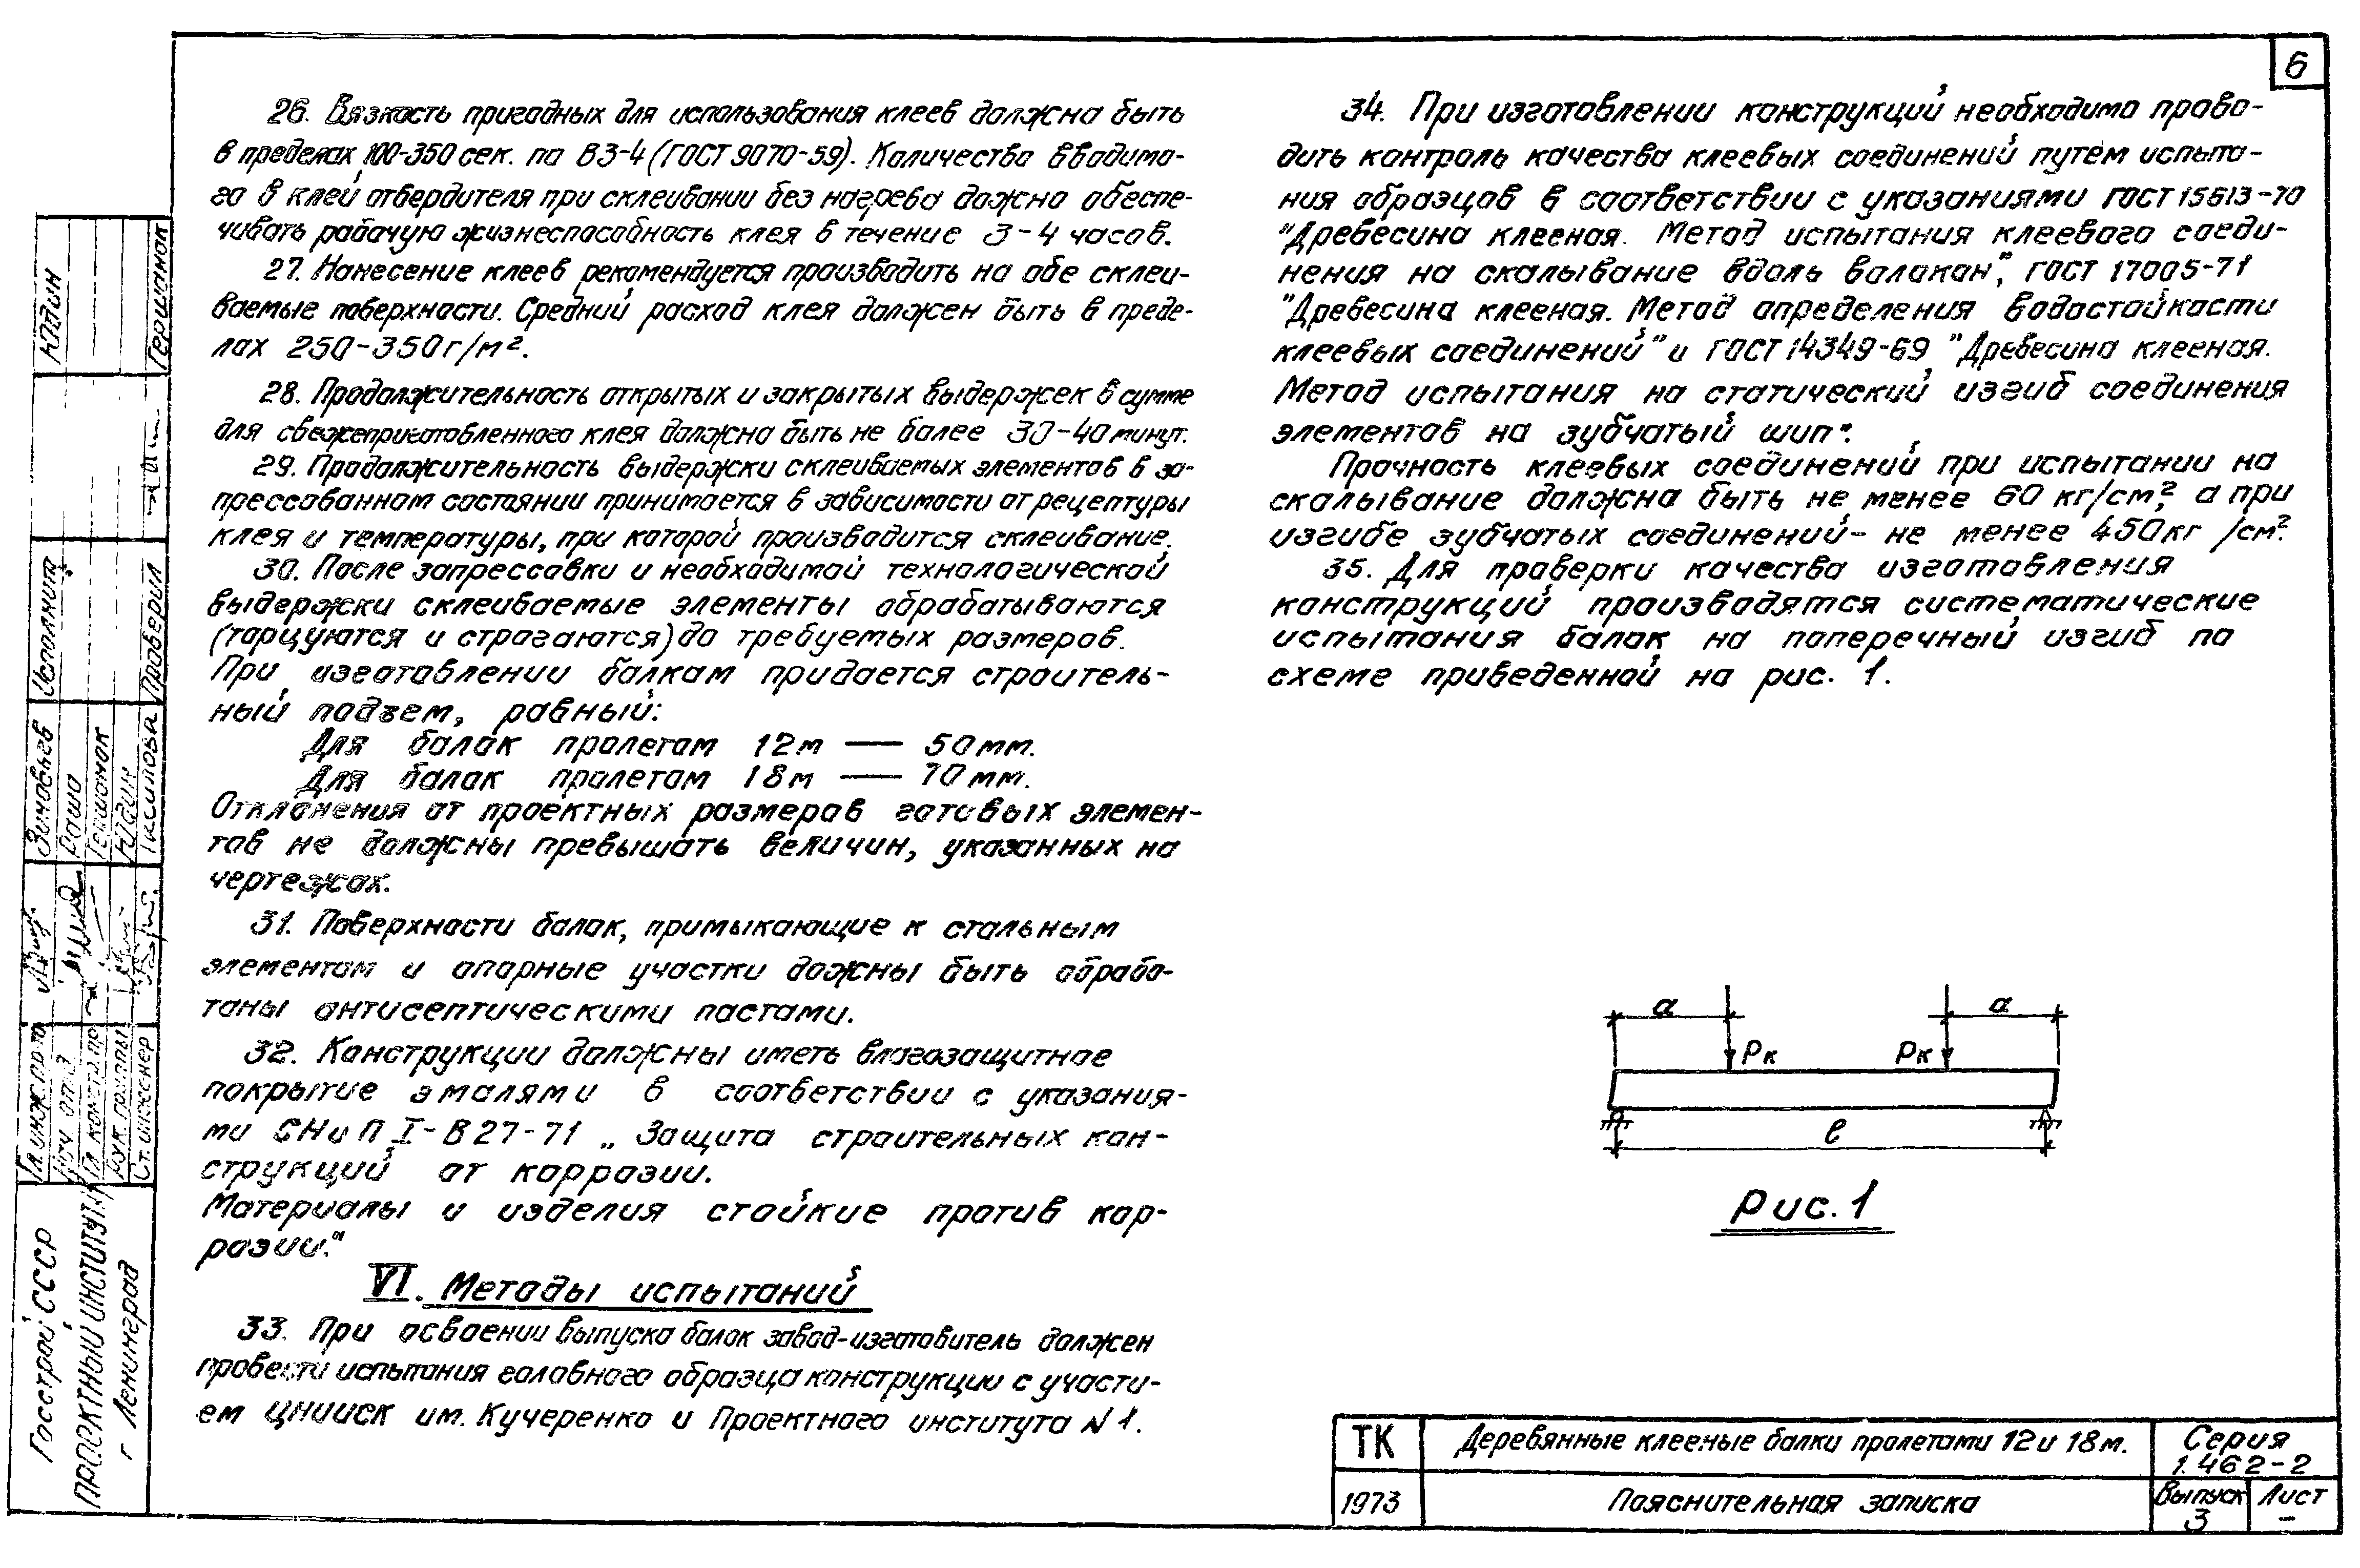 6
26. Вязкость пригодных для использования клеев должна быть
в пределах 100-350 сек. по ВЗ-4 (ГОСТ 9070-59). Количество вводимо-
го в клей отвердителя при склеивании без нагрева должно обеспе-
чивать рабочую жизнеспособность клея в течение 3-4 часов.
27. Нанесение клеев рекомендуется производить на обе склеи-
ваемые поверхности. Средний расход клея должен быть в преде-
лах 250-350 г/м².
28. Продолжительность открытых и закрытых выдержек в сумме
для свежеприготовленного клея должна быть не более 30-40 минут.
29. Продолжительность выдержки склеиваемых элементов в за-
прессованном состоянии принимается в зависимости от рецептуры
клея и температуры, при которой производится склеивание.
30. После запрессовки и необходимой технологической
выдержки склеиваемые элементы обрабатываются
(торцуются и строгаются) до требуемых размеров.
При изготовлении балкам придается строитель-
ный подъем, равный:
Для балок пролетом 12м — 50мм.
Для балок пролетом 18м — 70мм.
Отклонения от проектных размеров готовых элемен-
тов не должны превышать величин, указанных на
чертежах.
31. Поверхности балок, примыкающие к стальным
элементам и опорные участки должны быть обрабо-
таны антисептическими пастами.
32. Конструкции должны иметь влагозащитное
покрытие эмалями в соответствии с указания-
ми СНиП I-В 27-71 „Защита строительных кон-
струкций от коррозии.
Материалы и изделия стойкие против кор-
розии."
VI. Методы испытаний
33. При освоении выпуска балок завод-изготовитель должен
провести испытания головного образца конструкции с участи-
ем ЦНИИСК им. Кучеренко и Проектного института N 1.
34. При изготовлении конструкций необходимо прово-
дить контроль качества клеевых соединений путем испыта-
ния образцов в соответствии с указаниями ГОСТ 15613-70
"Древесина клееная. Метод испытания клеевого соеди-
нения на скалывание вдоль волокон", ГОСТ 17005-71
"Древесина клееная. Метод определения водостойкости
клеевых соединений" и ГОСТ 14349-69 "Древесина клееная.
Метод испытания на статический изгиб соединения
элементов на зубчатый шип".
Прочность клеевых соединений при испытании на
скалывание должна быть не менее 60 кг/см², а при
изгибе зубчатых соединений- не менее 450кг /см².
35. Для проверки качества изготовления
конструкций производятся систематические
испытания балок на поперечный изгиб по
схеме приведенной на рис. 1.
a a
Рк Рк
ℓ
Рис. 1
ТК Деревянные клееные балки пролетами 12 и 18 м. Серия
1.462-2
1973 Пояснительная записка Выпуск Лист
3 -
Госстрой СССР
Проектный институт
г Ленинград
Гл. инж. пр-та Зиновьев Исполнит Юдин
Рашо
Гершанок
Рук. группы Юдин
Ст. инженер Проверил Гершанок